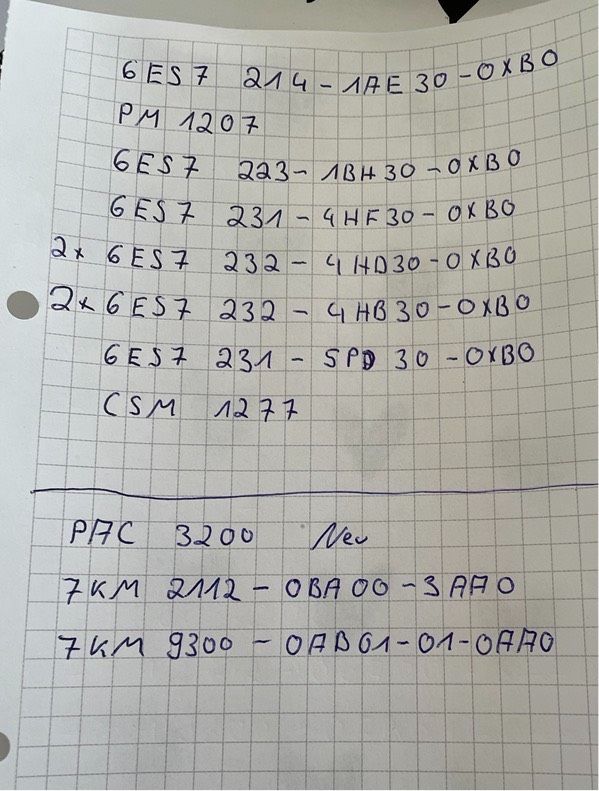 6ES7 214-1AE30-0XB0
PM 1207
6ES7 223-1BH30-0XB0
6ES7 231-4HF30-0XB0
2x 6ES7 232-4HD30-0XB0
2x 6ES7 232-4HB30-0XB0
6ES7 231-5PD30-0XB0
CSM 1277
PAC 3200 Neu
7KM 2112-0BA00-3AA0
7KM 9300-0AB01-01-0AA0